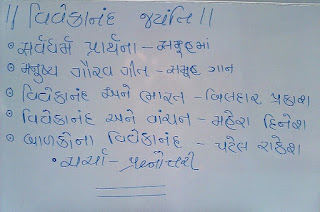 || વિવેકાનંદ જયંતિ ||
• સર્વધર્મ પ્રાર્થના - સમૂહમાં
• મનુષ્ય ગૌરવ ગીત - સમૂહ ગાન
• વિવેકાનંદ અને ભારત - બિલહાર પ્રકાશ
• વિવેકાનંદ અને વાંચન - મહેરા દિનેશ
• બાળકોના વિવેકાનંદ - પટેલ રાકેશ
• ચર્ચા - પ્રશ્નોત્તરી